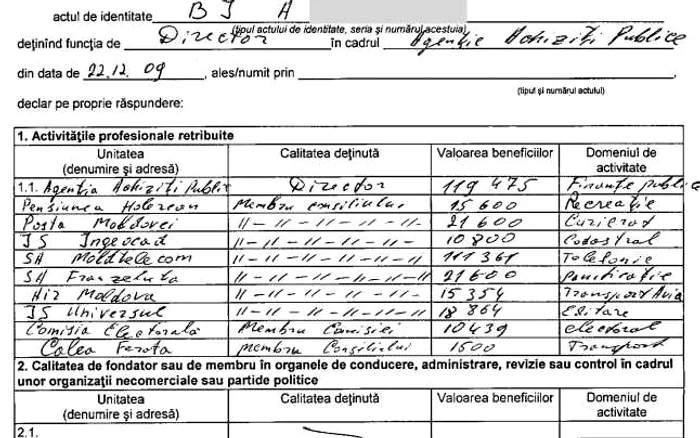 actul de identitate B I A
(tipul actului de identitate, seria și numărul acestuia)
deținînd funcția de Director în cadrul Agenție Achiziți Publice
din data de 22.12.09, ales/numit prin
(tipul și numărul actului)
declar pe proprie răspundere:
1. Activitățile profesionale retribuite
Unitatea (denumire și adresă) Calitatea deținută Valoarea beneficiilor Domeniul de activitate
1.1. Agenția Achiziți Public Director 119 475 Finanțe publice
Pensiunea Membru consiliului 15 600 Recreație
Poșta Moldovei 11-11-11-11-11- 21 600 Curierat
ÎS Ingeocad 11-11-11-11-11- 10 800 Cadastral
SA Moldtelecom 11-11-11-11-11- 111 361 Telefonie
SA Franzeluta 11-11-11-11-11- 21600 Panificație
Air Moldova 11-11-11-11-11- 15 354 Transport Avia
ÎS Universul 11-11-11-11-11- 18 864 Editare
Comisia Electorală Membru Comisiei 10439 electoral
Calea Ferata membru Consiliului 1500 Transport
2. Calitatea de fondator sau de membru în organele de conducere, administrare, revizie sau control în cadrul
unor organizații necomerciale sau partide politice
Unitatea (denumire și adresă) Calitatea deținută Valoarea beneficiilor Domeniul de activitate
2.1.